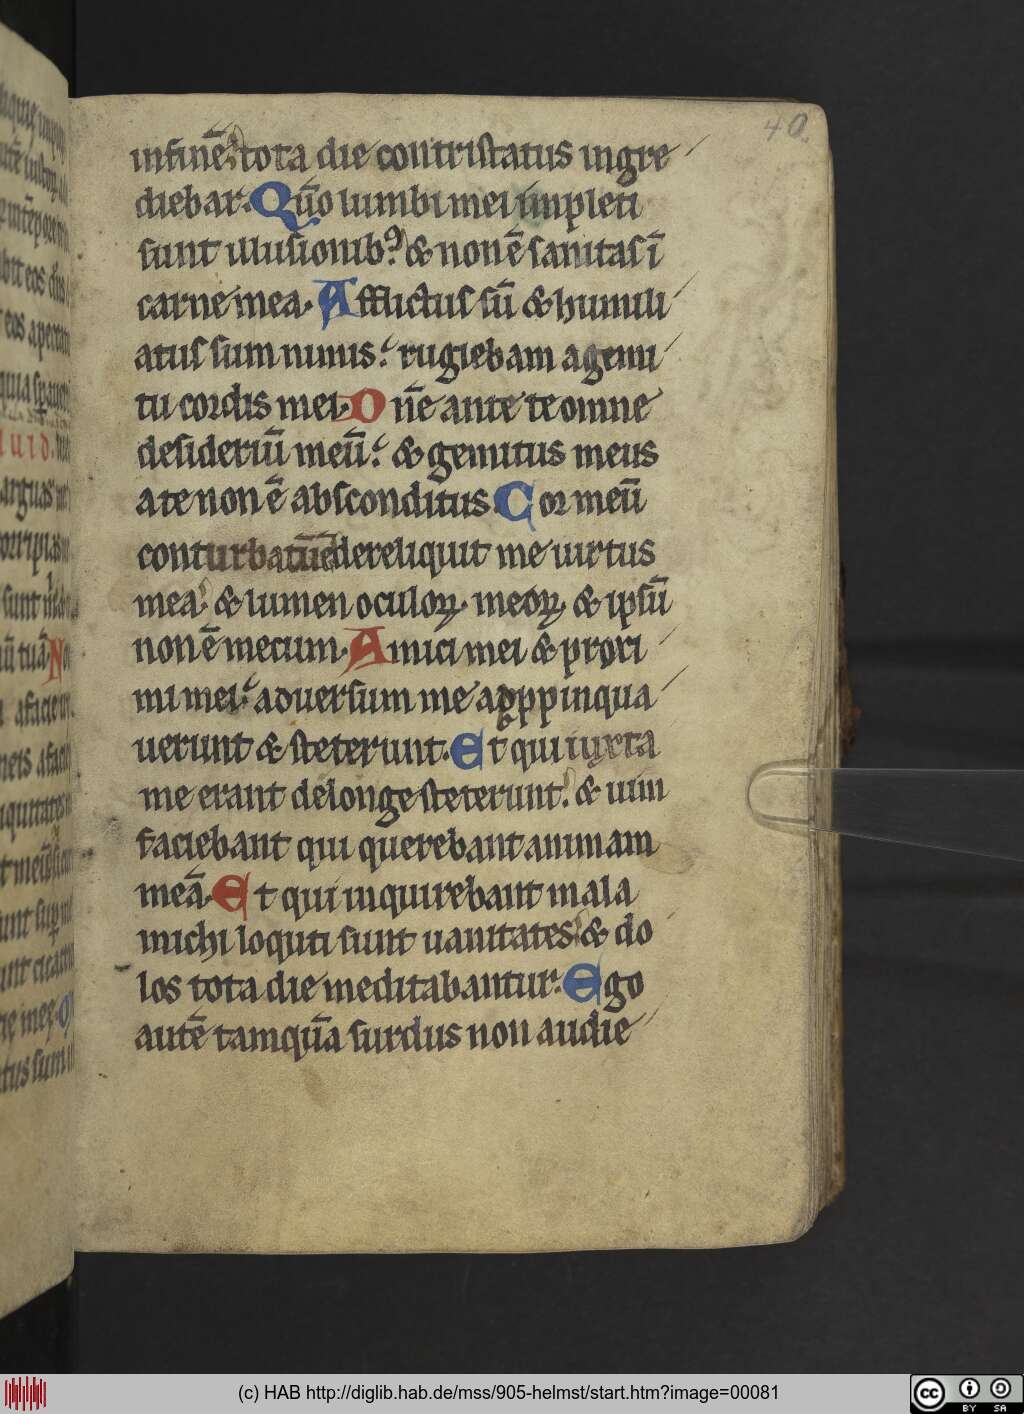 40.
infinē. tota die contristatus ingre
diebar. Qūo lumbi mei impleti
sunt illusionibꝰ. & non ē sanitas ī
carne mea. Afflictus sū & humili
atus sum nimis. rugiebam a gemi
tu cordis mei. D ñe ante te omne
desideriū meū. & gemitus meus
a te non ē absconditus. C or meū
conturbatū ē dereliquit me uirtus
mea. & lumen oculoꝝ meoꝝ & ipsū
non ē mecum. Amici mei & proxi
mi mei. aduersum me apppinqua
uerunt & steterunt. E t qui iuxta
me erant de longe steterunt. & uim
faciebant qui querebant animam
meā. E t qui inquirebant mala
michi loquti sunt uanitates. & do
los tota die meditabantur. Ego
autē tamquā surdus non audie
(c) HAB http://diglib.hab.de/mss/905-helmst/start.htm?image=00081
cc BY SA